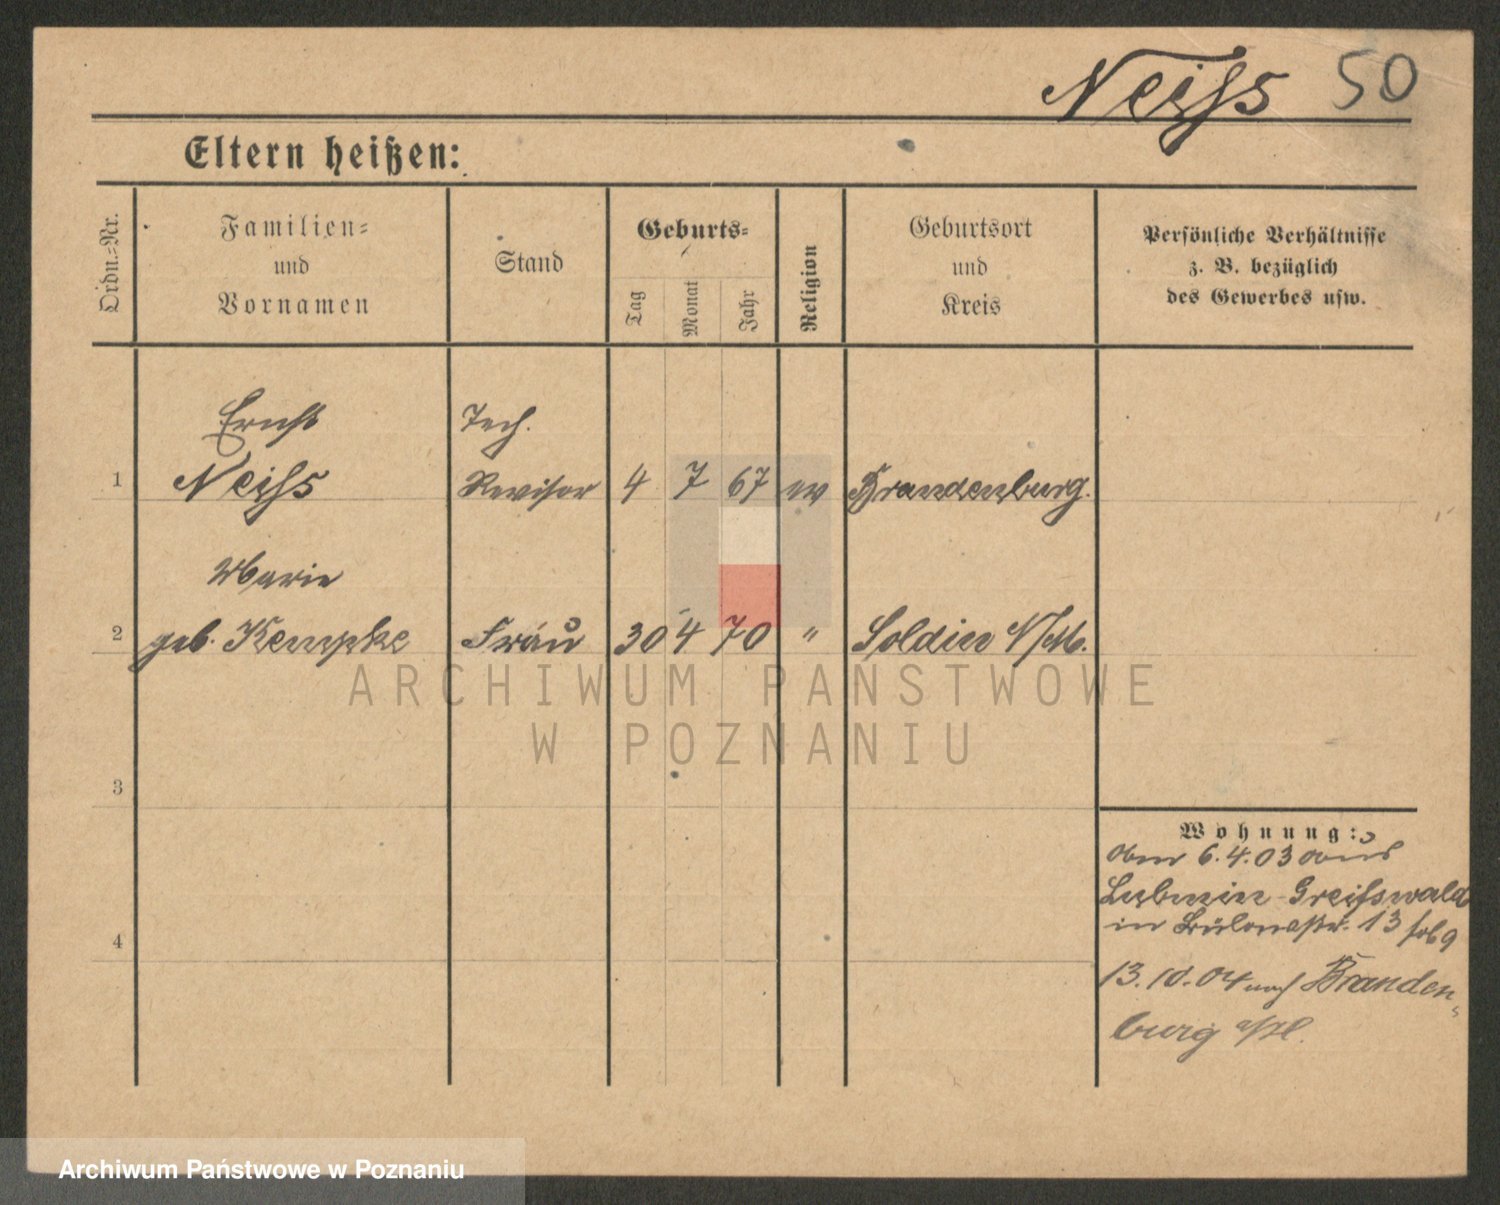 Neiſs 50
Eltern heißen:
Ordn.-Nr.
Familien-
und
Vornamen
Stand
Geburts-
Tag
Monat
Jahr
Religion
Geburtsort
und
Kreis
Persönliche Verhältnisse
z. B. bezüglich
des Gewerbes usw.
Ernst Tech.
1 Neiſs Revisor 4 7 67 ev Brandenburg.
Marie
2 geb. Kempke Frau 30 4 70 " Soldin N/M.
3
4
Wohnung:
6.4.03 aus
Lubmin-Greifswald
in Bülowstr. 13
13.10.04 nach Branden-
burg a/H.
ARCHIWUM PAŃSTWOWE
W POZNANIU
Archiwum Państwowe w Poznaniu